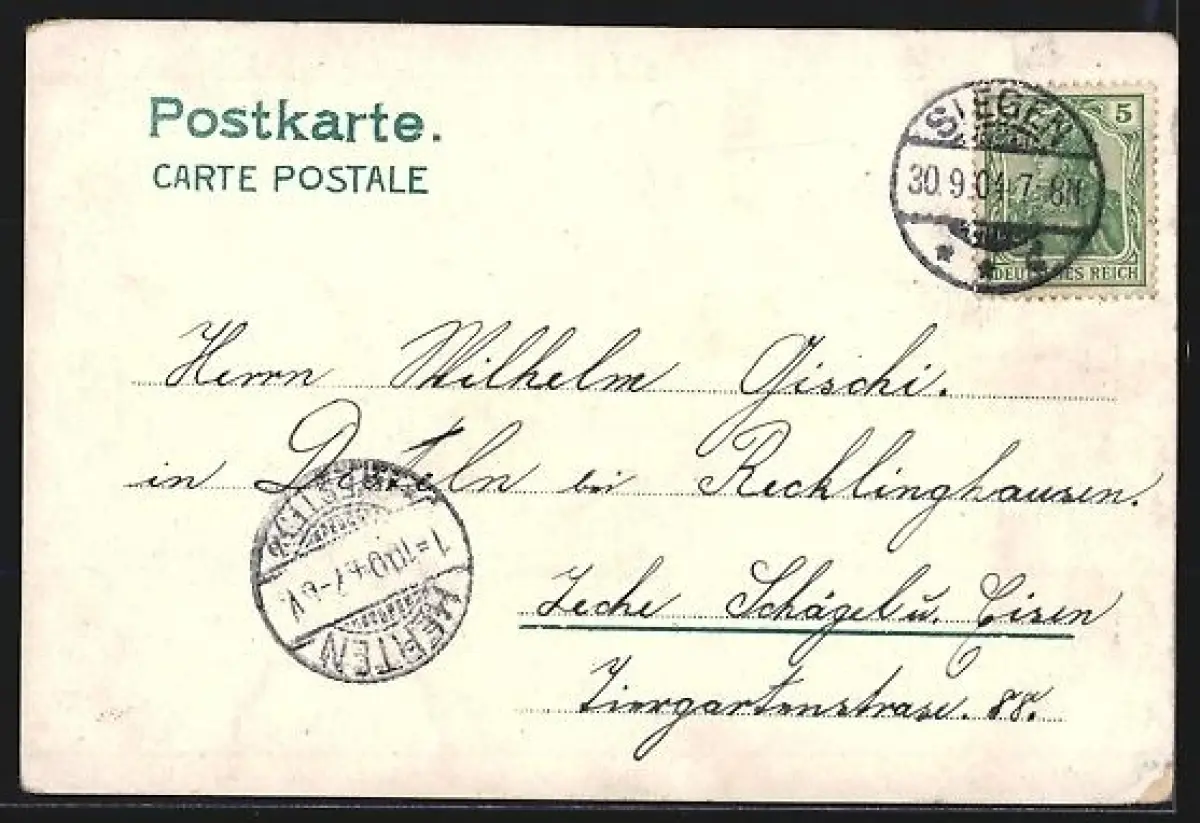 Postkarte.
CARTE POSTALE
SIEGEN
30.9.04.7-8N.
* * c
5
DEUTSCHES REICH
Herrn Wilhelm Gischi.
in Dateln bei Recklinghausen.
Zeche Schägel u. Eisen
Tiergartenstrase. 88.
1=10.04.7-8.V.
HERTEN